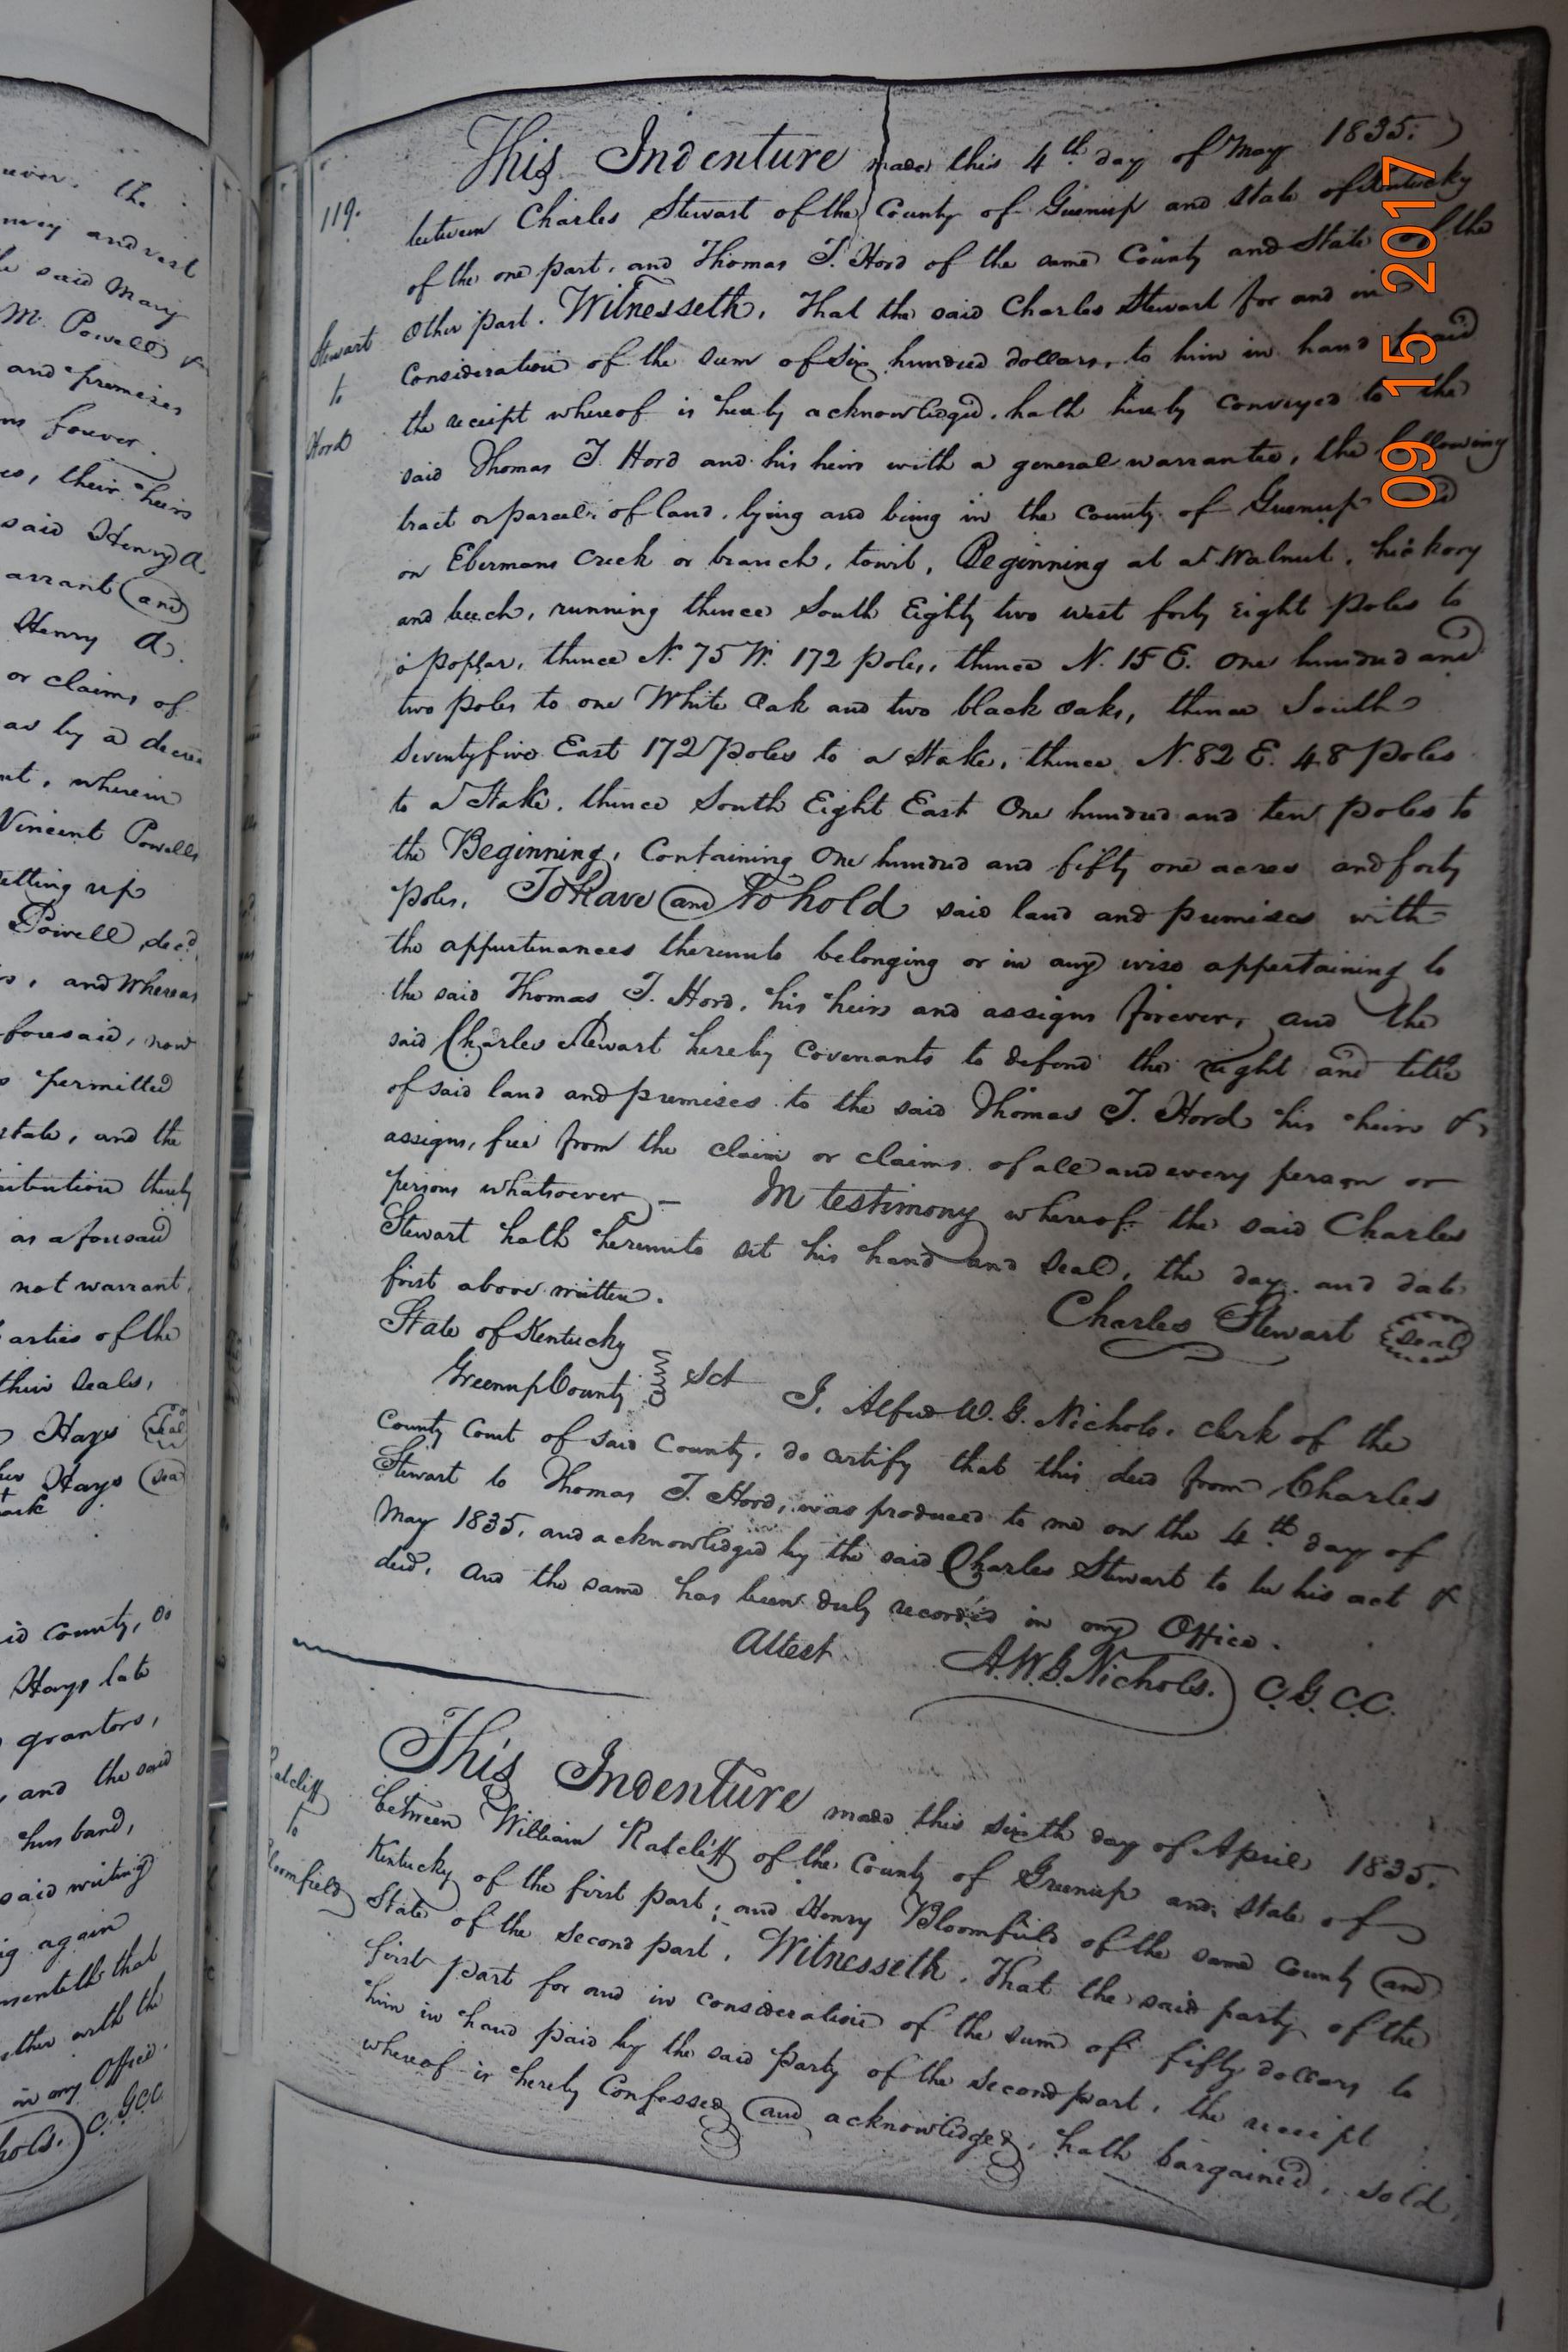 uver. the
nvey and vest
he said Mary
M. Powell &
and premises
ns forever.
es, their heirs
said Henry A
arrant and
Henry A.
or claims of
as by a decree
nt, wherein
Vincent Powells
etting up
Powell decd
s, and Whereas
foresaid, now
s permitted
state, and the
intention thereby
as aforesaid
not warrant
arties of the
their Seals,
Hays Seal
her Hays Sea
ark
id County, do
Hays late
grantors,
and the said
husband,
said writing
ig again
nsenteth that
ether with the
in my Office.
hols. C. GCC
119.
Stewart
to
Hord
This Indenture made this 4th day of May 1835.
between Charles Stewart of the County of Greenup and State of Kentucky
of the one part, and Thomas T. Hord of the same County and State of the
other part. Witnesseth, That the said Charles Stewart for and in
Consideration of the sum of Six hundred dollars, to him in hand paid
the receipt whereof is hereby acknowledged, hath hereby conveyed to the
said Thomas T. Hord and his heirs with a general warrantee, the following
tract or parcel of land, lying and being in the County of Greenup and
on Ebermans Creek or branch, towit, Beginning at a Walnut, hickory
and beech, running thence South Eighty two west forty Eight Poles to
a poplar, thence N. 75 W. 172 poles, thence N. 15 E. One hundred and
two poles to one White Oak and two black oaks, thence South
Seventyfive East 172 Poles to a Stake, thence N. 82 E. 48 Poles
to a Stake, thence South Eight East One hundred and ten poles to
the Beginning, Containing One hundred and fifty one acres and forty
Poles. To have and to hold said land and premises with
the appurtenances thereunto belonging or in any wise appertaining to
the said Thomas T. Hord, his heirs and assigns forever, and the
said Charles Stewart hereby covenants to defend the right and title
of said land and premises to the said Thomas T. Hord his heirs &
assigns, free from the claim or claims of all and every person or
persons whatsoever - In testimony whereof the said Charles
Stewart hath hereunto set his hand and seal, the day and date
first above written.
Charles Stewart Seal
State of Kentucky
Greenup County Sct I, Alfred W. G. Nichols, clerk of the
County Court of said County, do certify that this deed from Charles
Stewart to Thomas T. Hord, was produced to me on the 4th day of
May 1835, and acknowledged by the said Charles Stewart to be his act &
deed, and the same has been duly recorded in my Office.
Attest A.W.G. Nichols. C.G.C.C.
Ratcliff
to
Bloomfield
This Indenture made this sixth day of April 1835.
between William Ratcliff of the County of Greenup and State of
Kentucky of the first part; and Henry Bloomfield of the same County and
State of the second part, Witnesseth, That the said party of the
first part for and in consideration of the sum of fifty dollars to
him in hand paid by the said party of the second part, the receipt
whereof is hereby Confessed and acknowledged, hath bargained, sold,
09 15 2017